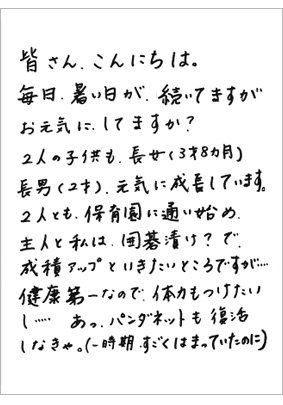 皆さん、こんにちは。
毎日、暑い日が、続いてますが
お元気に、してますか？
2人の子供も、長女(3才8ヵ月)
長男(2才)、元気に成長しています。
2人とも、保育園に通い始め、
主人と私は、囲碁漬け？で、
成積アップといきたいところですが…
健康第一なので、体力もつけたい
し…… あっ、パンダネットも復活
しなきゃ。(一時期、すごくはまっていたのに)